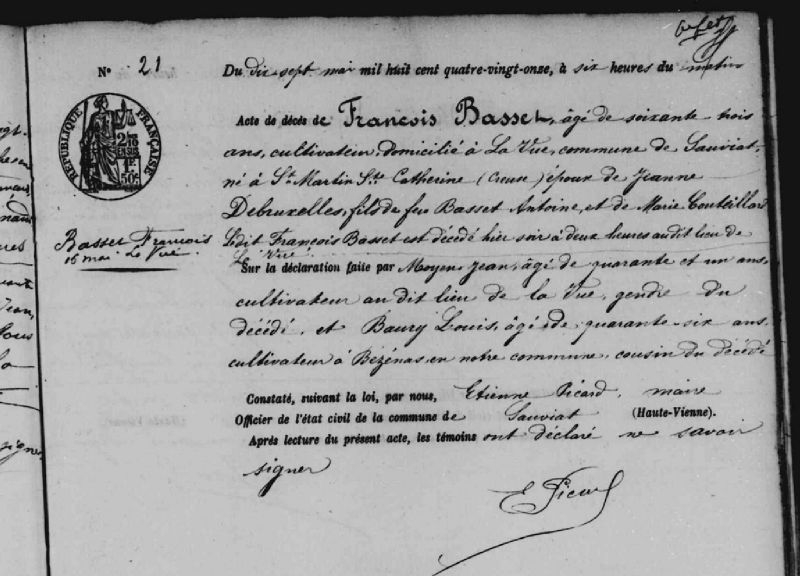 N° 21
Du dix sept mai mil huit cent quatre-vingt-onze, à six heures du matin
RÉPUBLIQUE FRANÇAISE
Acte de décès de François Basset, âgé de soixante trois
ans, cultivateur, domicilié à La Vue, commune de Sauviat,
né à St Martin Ste Catherine (Creuse) époux de Jeanne
Debruxelles, fils de feu Basset Antoine, et de Marie Couteillard
Ledit François Basset est décédé hier soir à deux heures audit lieu de
La Vue
Basset François
16 mai La Vue
Sur la déclaration faite par Moyen Jean, âgé de quarante et un ans
cultivateur au dit lieu de la Vue, gendre du
décédé, et Baury Louis, âgé de quarante-six ans
cultivateur à Bezénas, en notre commune, cousin du décédé
Constaté, suivant la loi, par nous, Etienne Picard, maire
Officier de l'état civil de la commune de Sauviat (Haute-Vienne).
Après lecture du présent acte, les témoins ont déclaré ne savoir
signer
E Picard